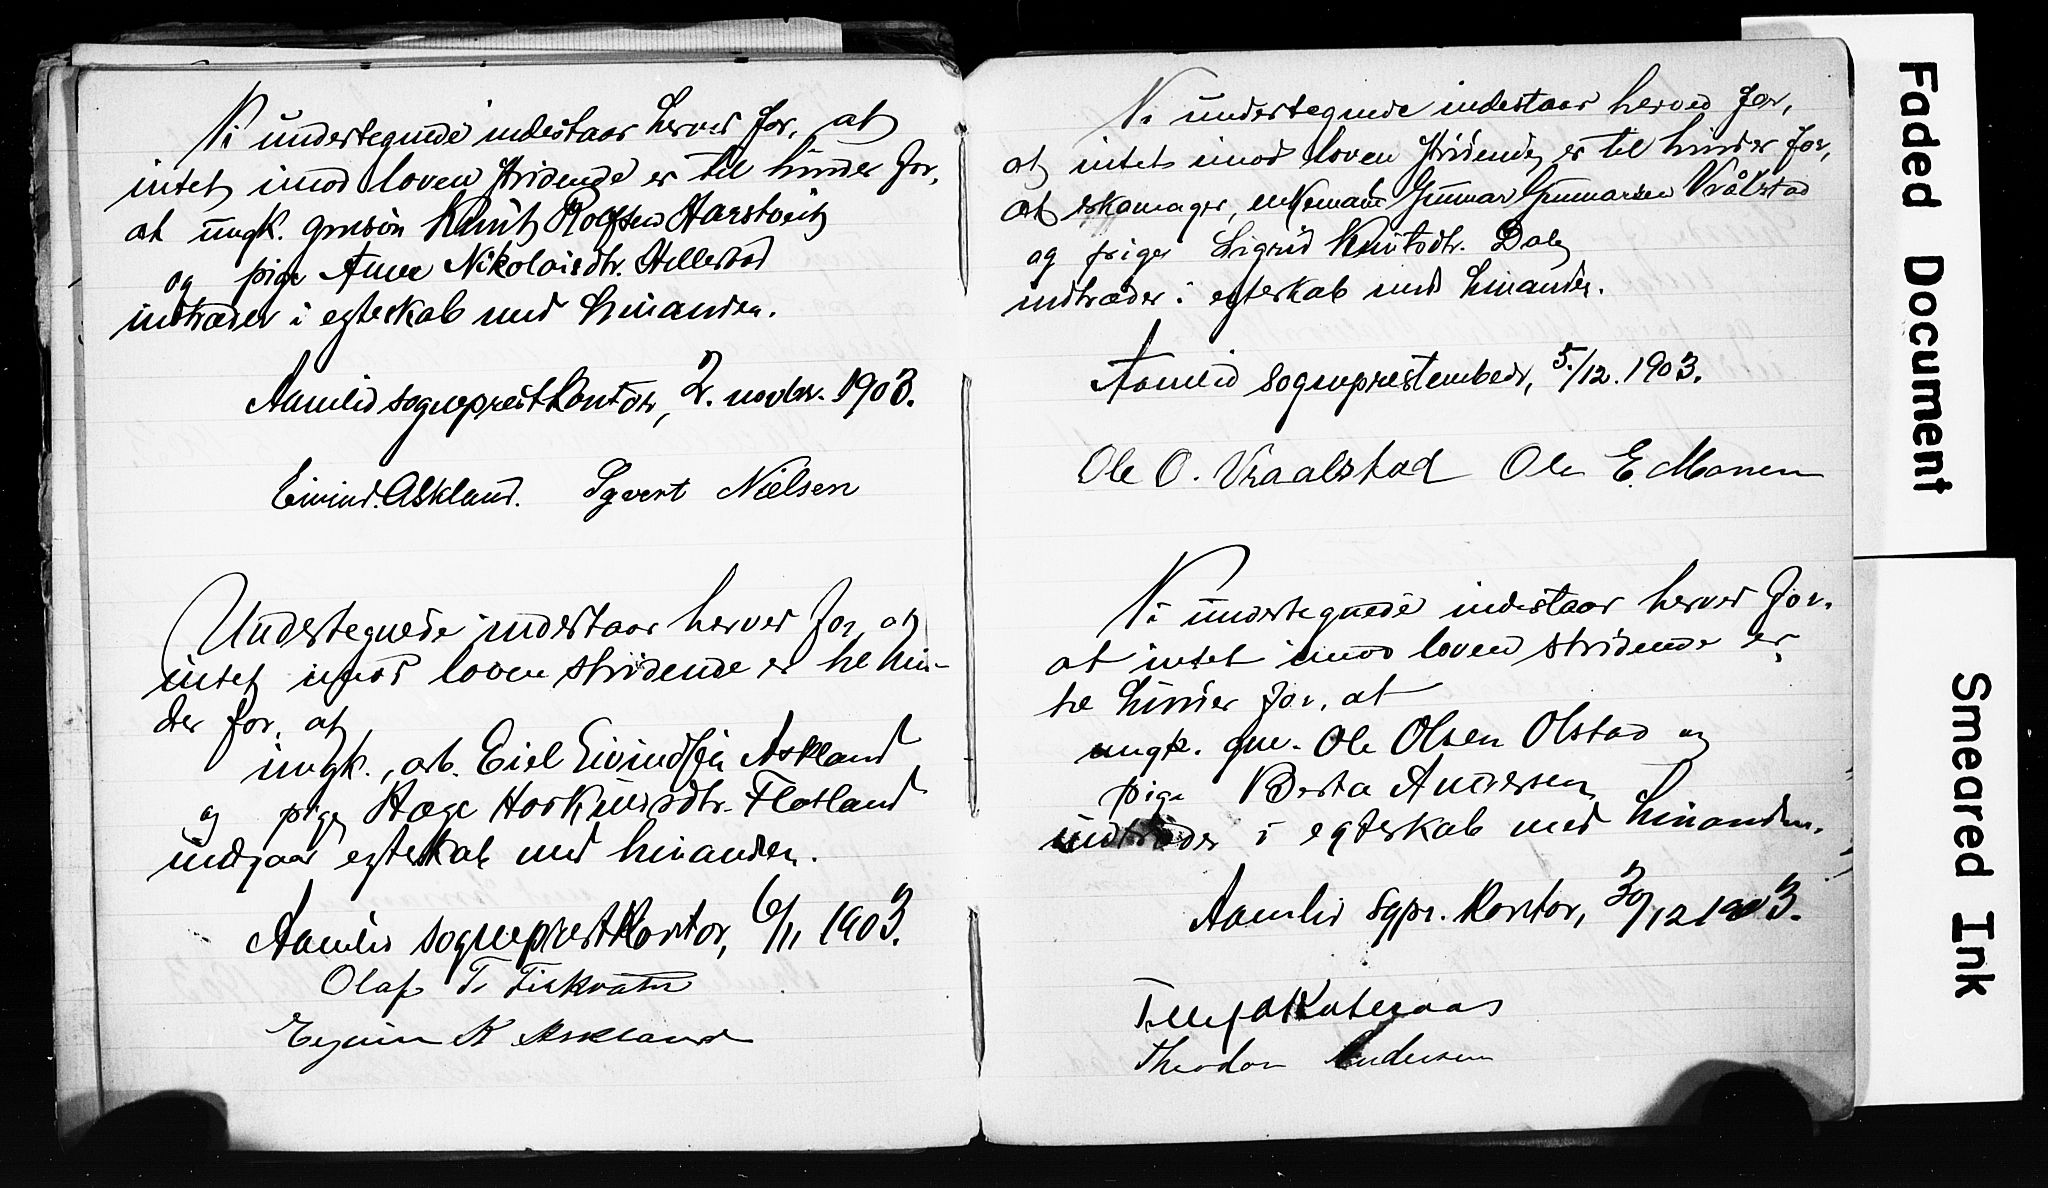 Vi undertegnede indestaar herved for, at
intet imod loven stridende er til hinder for,
at ungk. grmsøn Knut Rolfsen Harstveit
og pige Anne Nikolaisdtr. Hillestad
indtræder i egteskab med hinanden.
Aamlid sogneprestkontor, 2. novbr. 1903.
Eivind Askland. Syvert Nielsen
Undertegnede indestaar herved for, at
intet imod loven stridende er til hin-
der for, at
ungk., arb. Eivindsen Askland
og pige Hæge Flatland
indgaar egteskab med hinanden.
Aamlid sogneprestkontor, 6/11 1903.
Olaf T. Fiskvatn
K Askland
Vi undertegnede indestaar herved for,
at intet imod loven stridende er til hinder for,
at skomager, enkemand Gunnar Gunnarsen Vrålstad
og pige Sigrid Knutsdtr. Dale
indtræder i egteskab med hinanden.
Aamlid sogneprestembede, 5/12. 1903.
Ole O. Vraalstad Ole E. Monen
Vi undertegnede indestaar herved for,
at intet imod loven stridende er
til hinder for, at
ungk. gm. Ole Olsen Olstad og
pige Berta Andersen
indtræder i egteskab med hinanden.
Aamlid sgpr. kontor, 30/12 1903.
Theodor Andersen
Faded Document
Smeared Ink